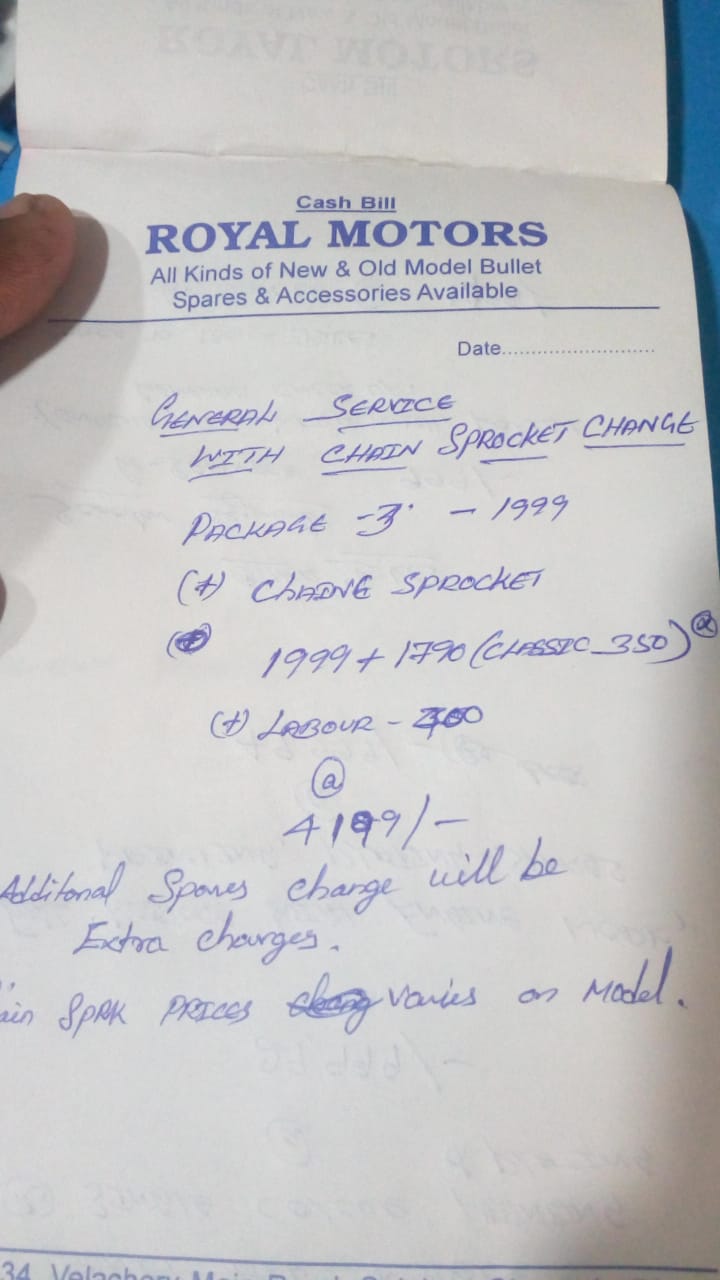 Cash Bill
ROYAL MOTORS
All Kinds of New & Old Model Bullet
Spares & Accessories Available
Date...........................
GENERAL SERVICE
WITH CHAIN SPROCKET CHANGE
PACKAGE -3 - 1999
(+) CHAINE SPROCKET
1999 + 1790 (CLASSIC_350)
(+) LABOUR -
@
4199/-
Additonal Spares change will be
Extra charges.
SPRK PRICES varies on Model.
34, Velachery Main Road,